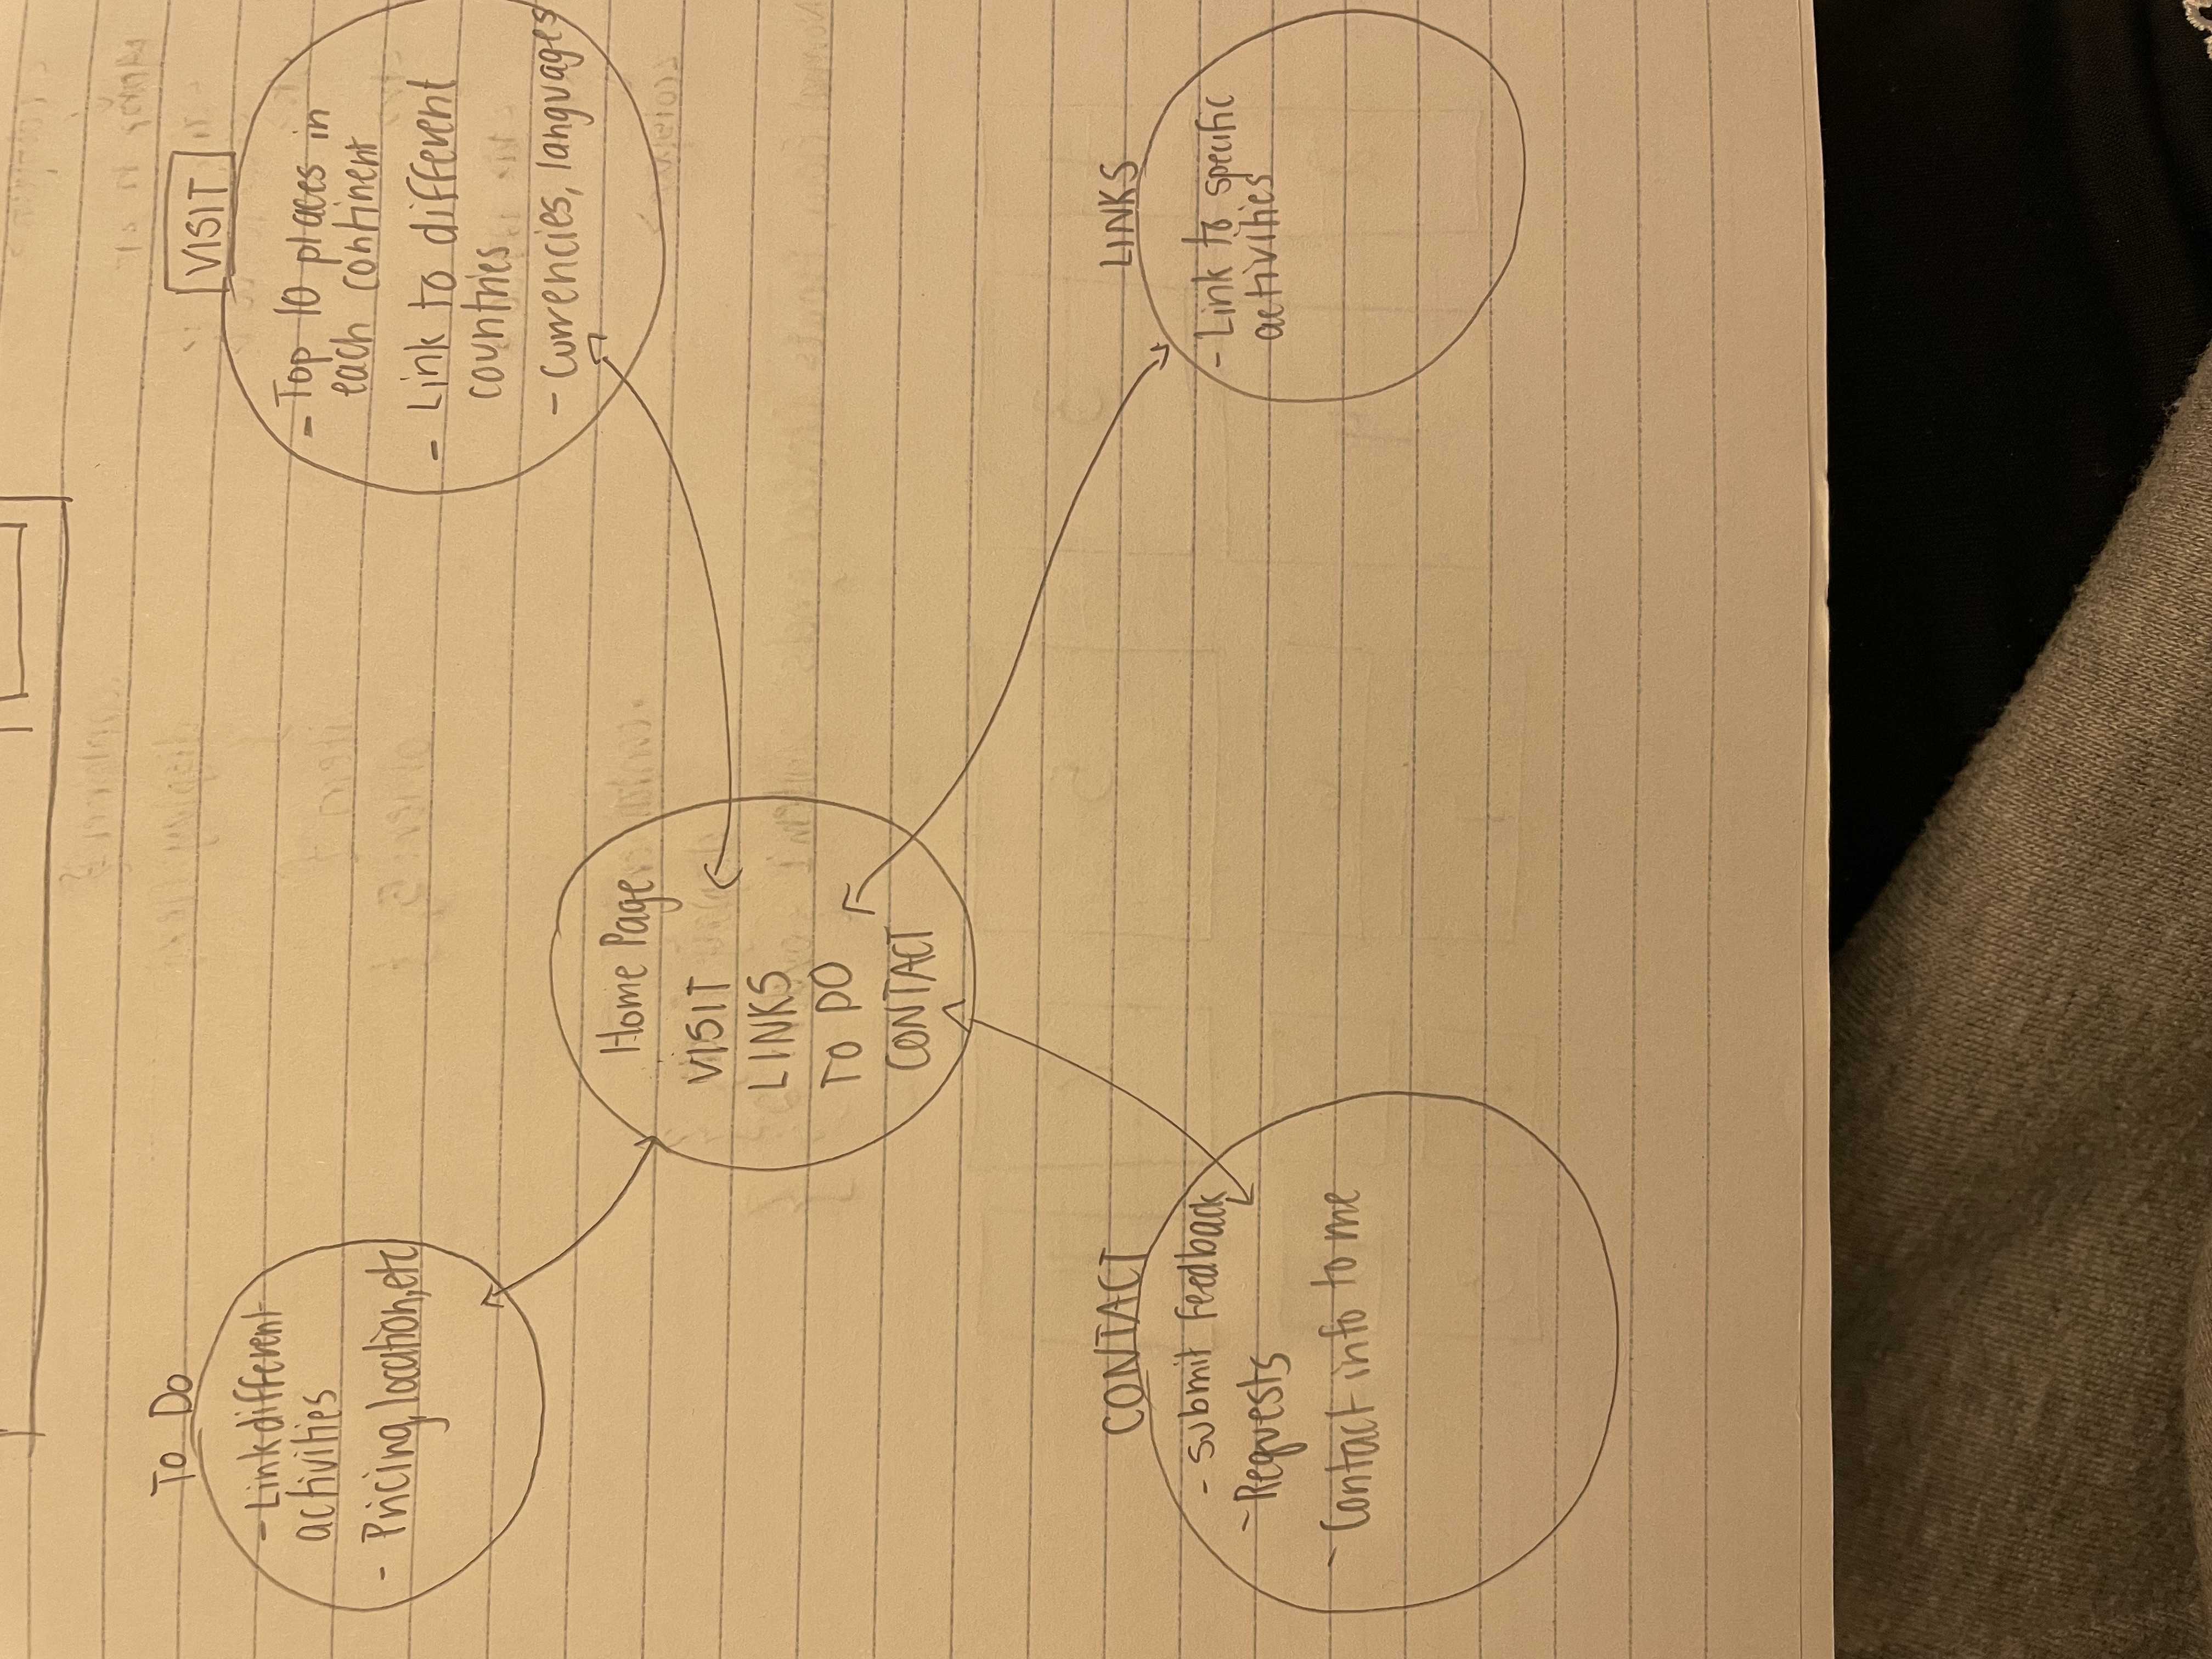 To Do
- Link different
activities
- Pricing, location, etc
VISIT
- Top 10 places in
each continent
- Link to different
countries
- Currencies, languages
Home Page
VISIT
LINKS
TO DO
CONTACT
CONTACT
- Submit feedback
- Requests
- Contact info to me
LINKS
- Link to specific
activities